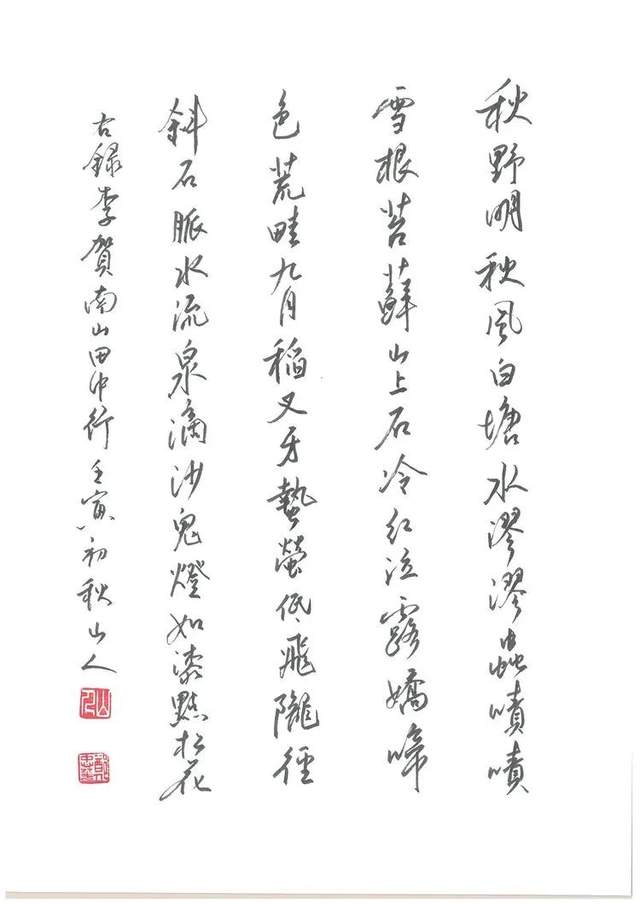 秋野明秋風白塘水漻漻蟲嘖嘖
雪根苔蘚山上石冷紅泣露嬌啼
色荒畦九月稻叉牙蟄螢低飛隴徑
斜石脈水流泉滴沙鬼燈如漆點松花
古錄李賀南山田中行壬寅初秋山人